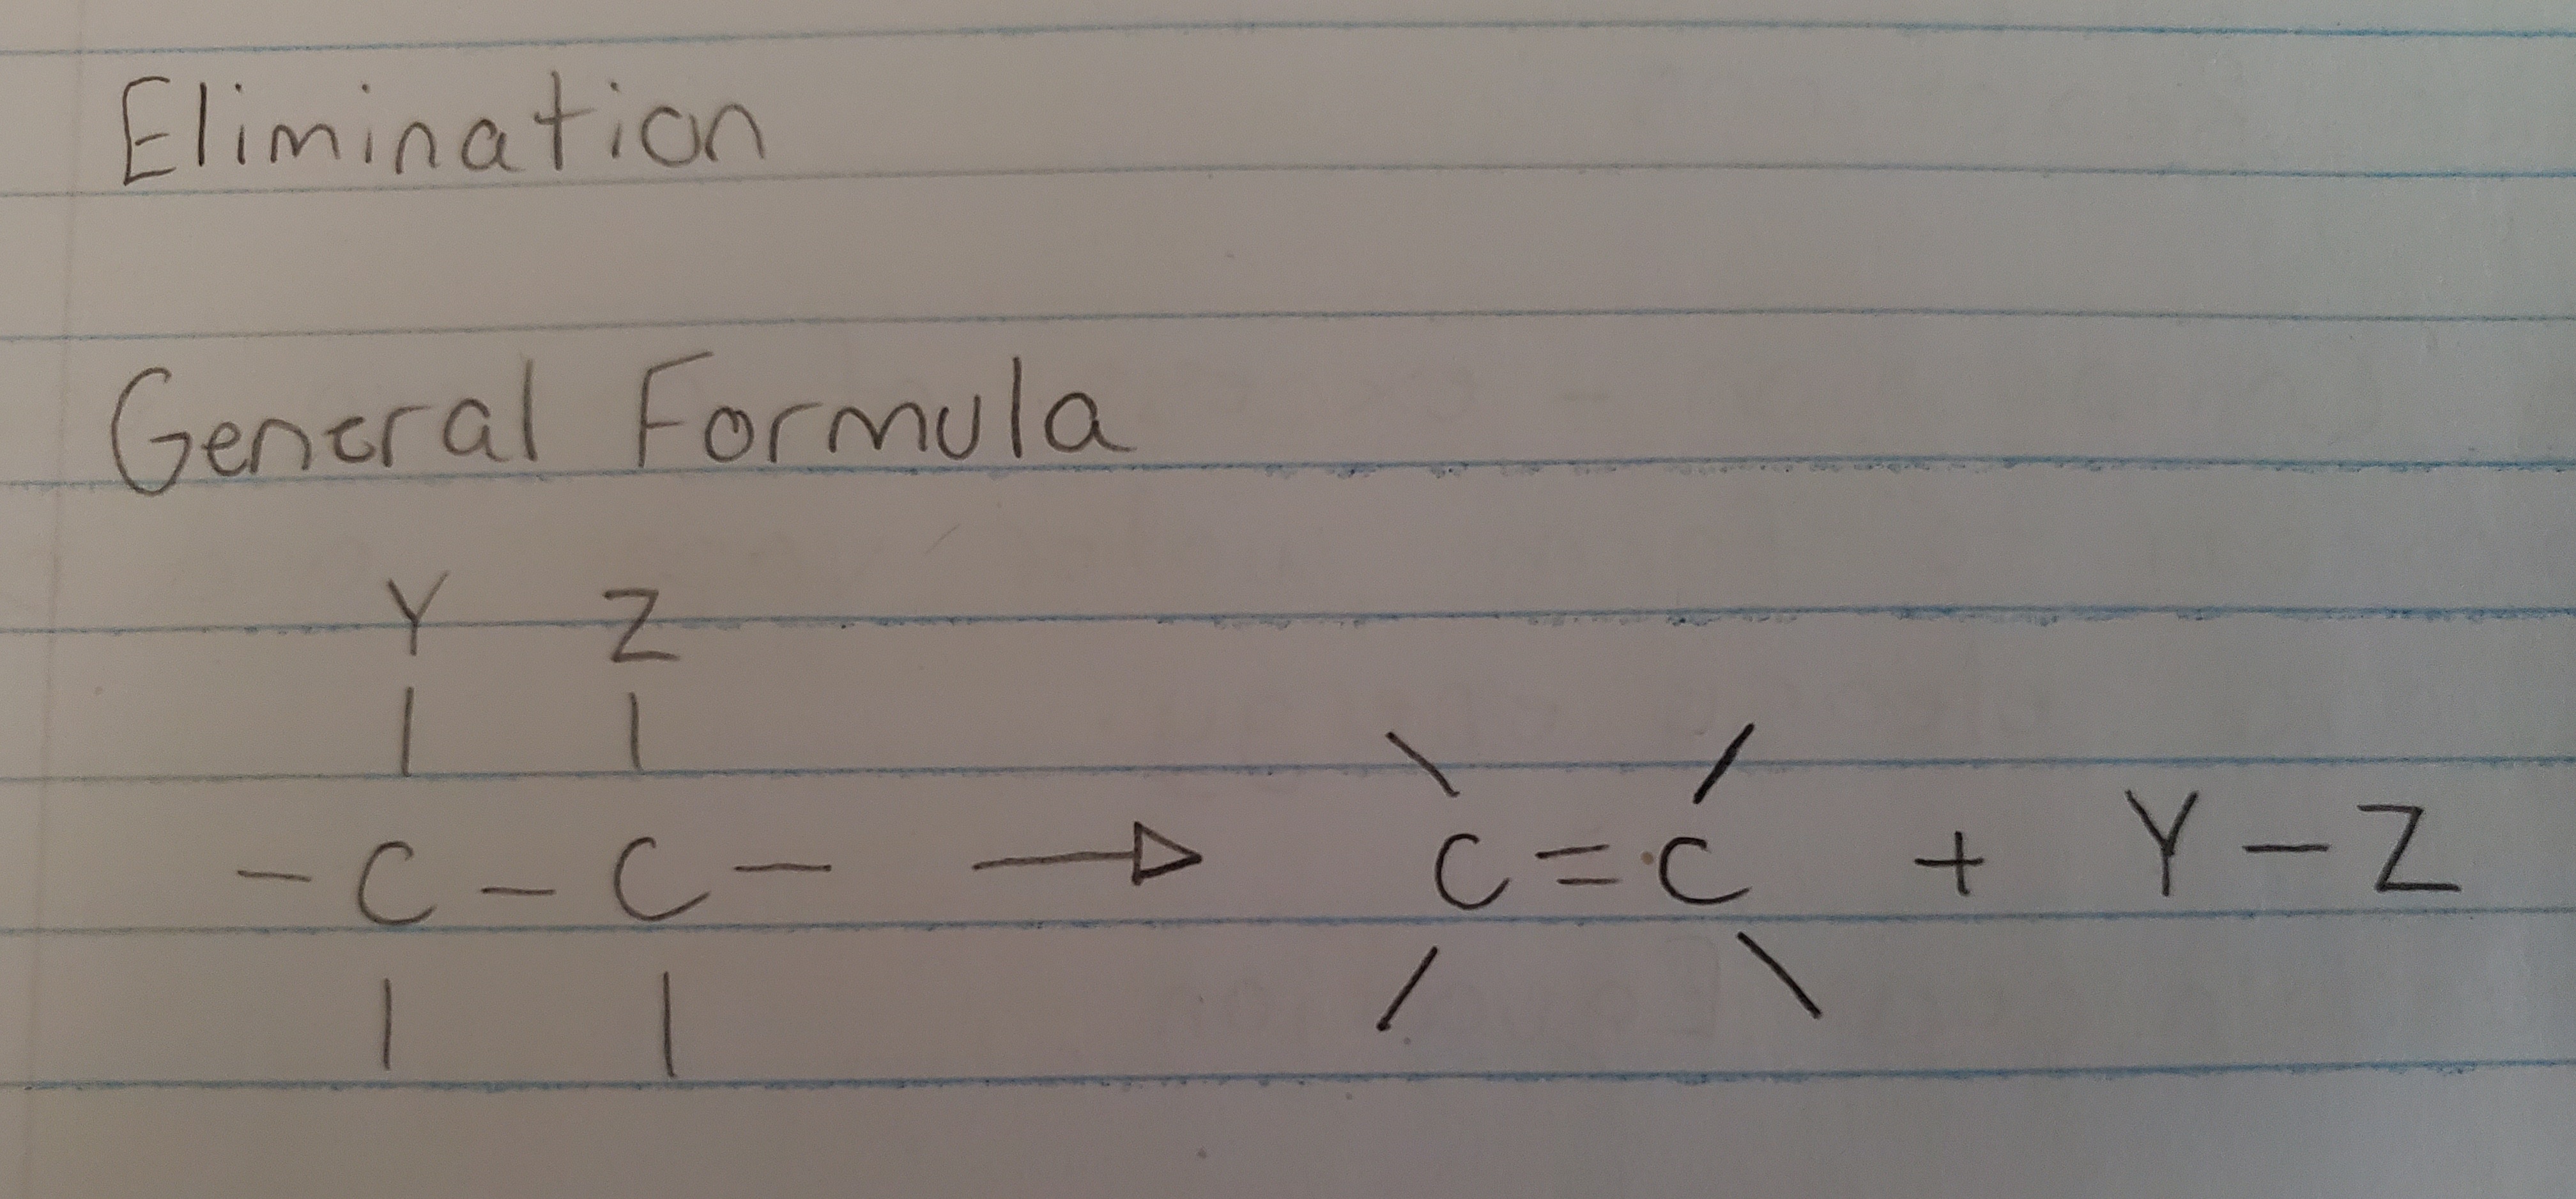 Elimination
General Formula
Y Z
| |
– C – C – → \ / C = C / \ + Y – Z
| |